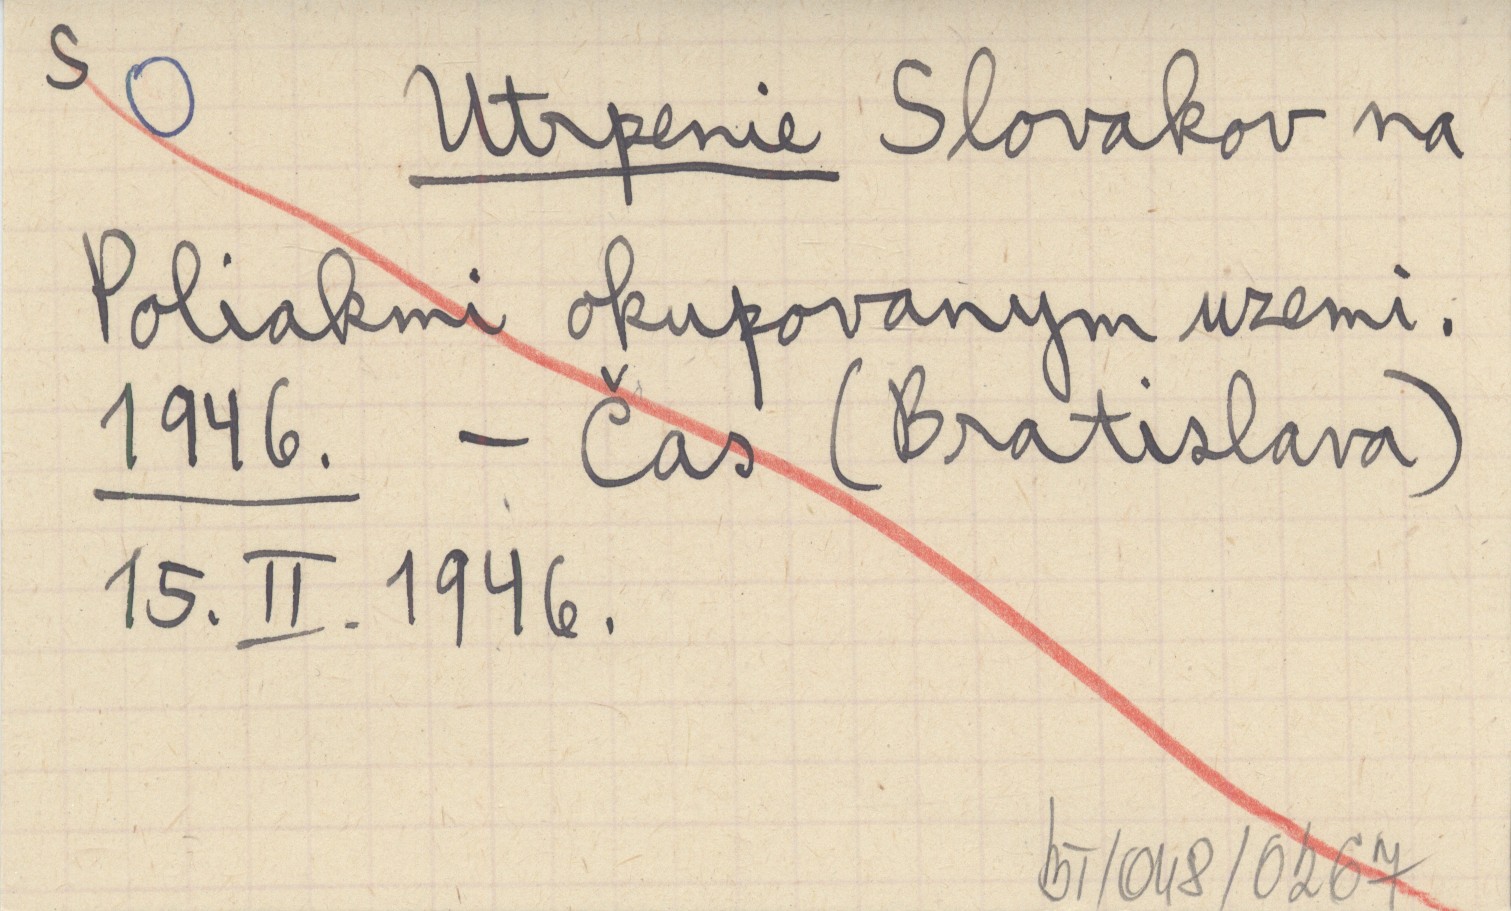 S O Utrpenie Slovakov na
Poliakmi okupovanym uzemi.
1946. – Čas (Bratislava)
15. II. 1946.
BI/048/0267